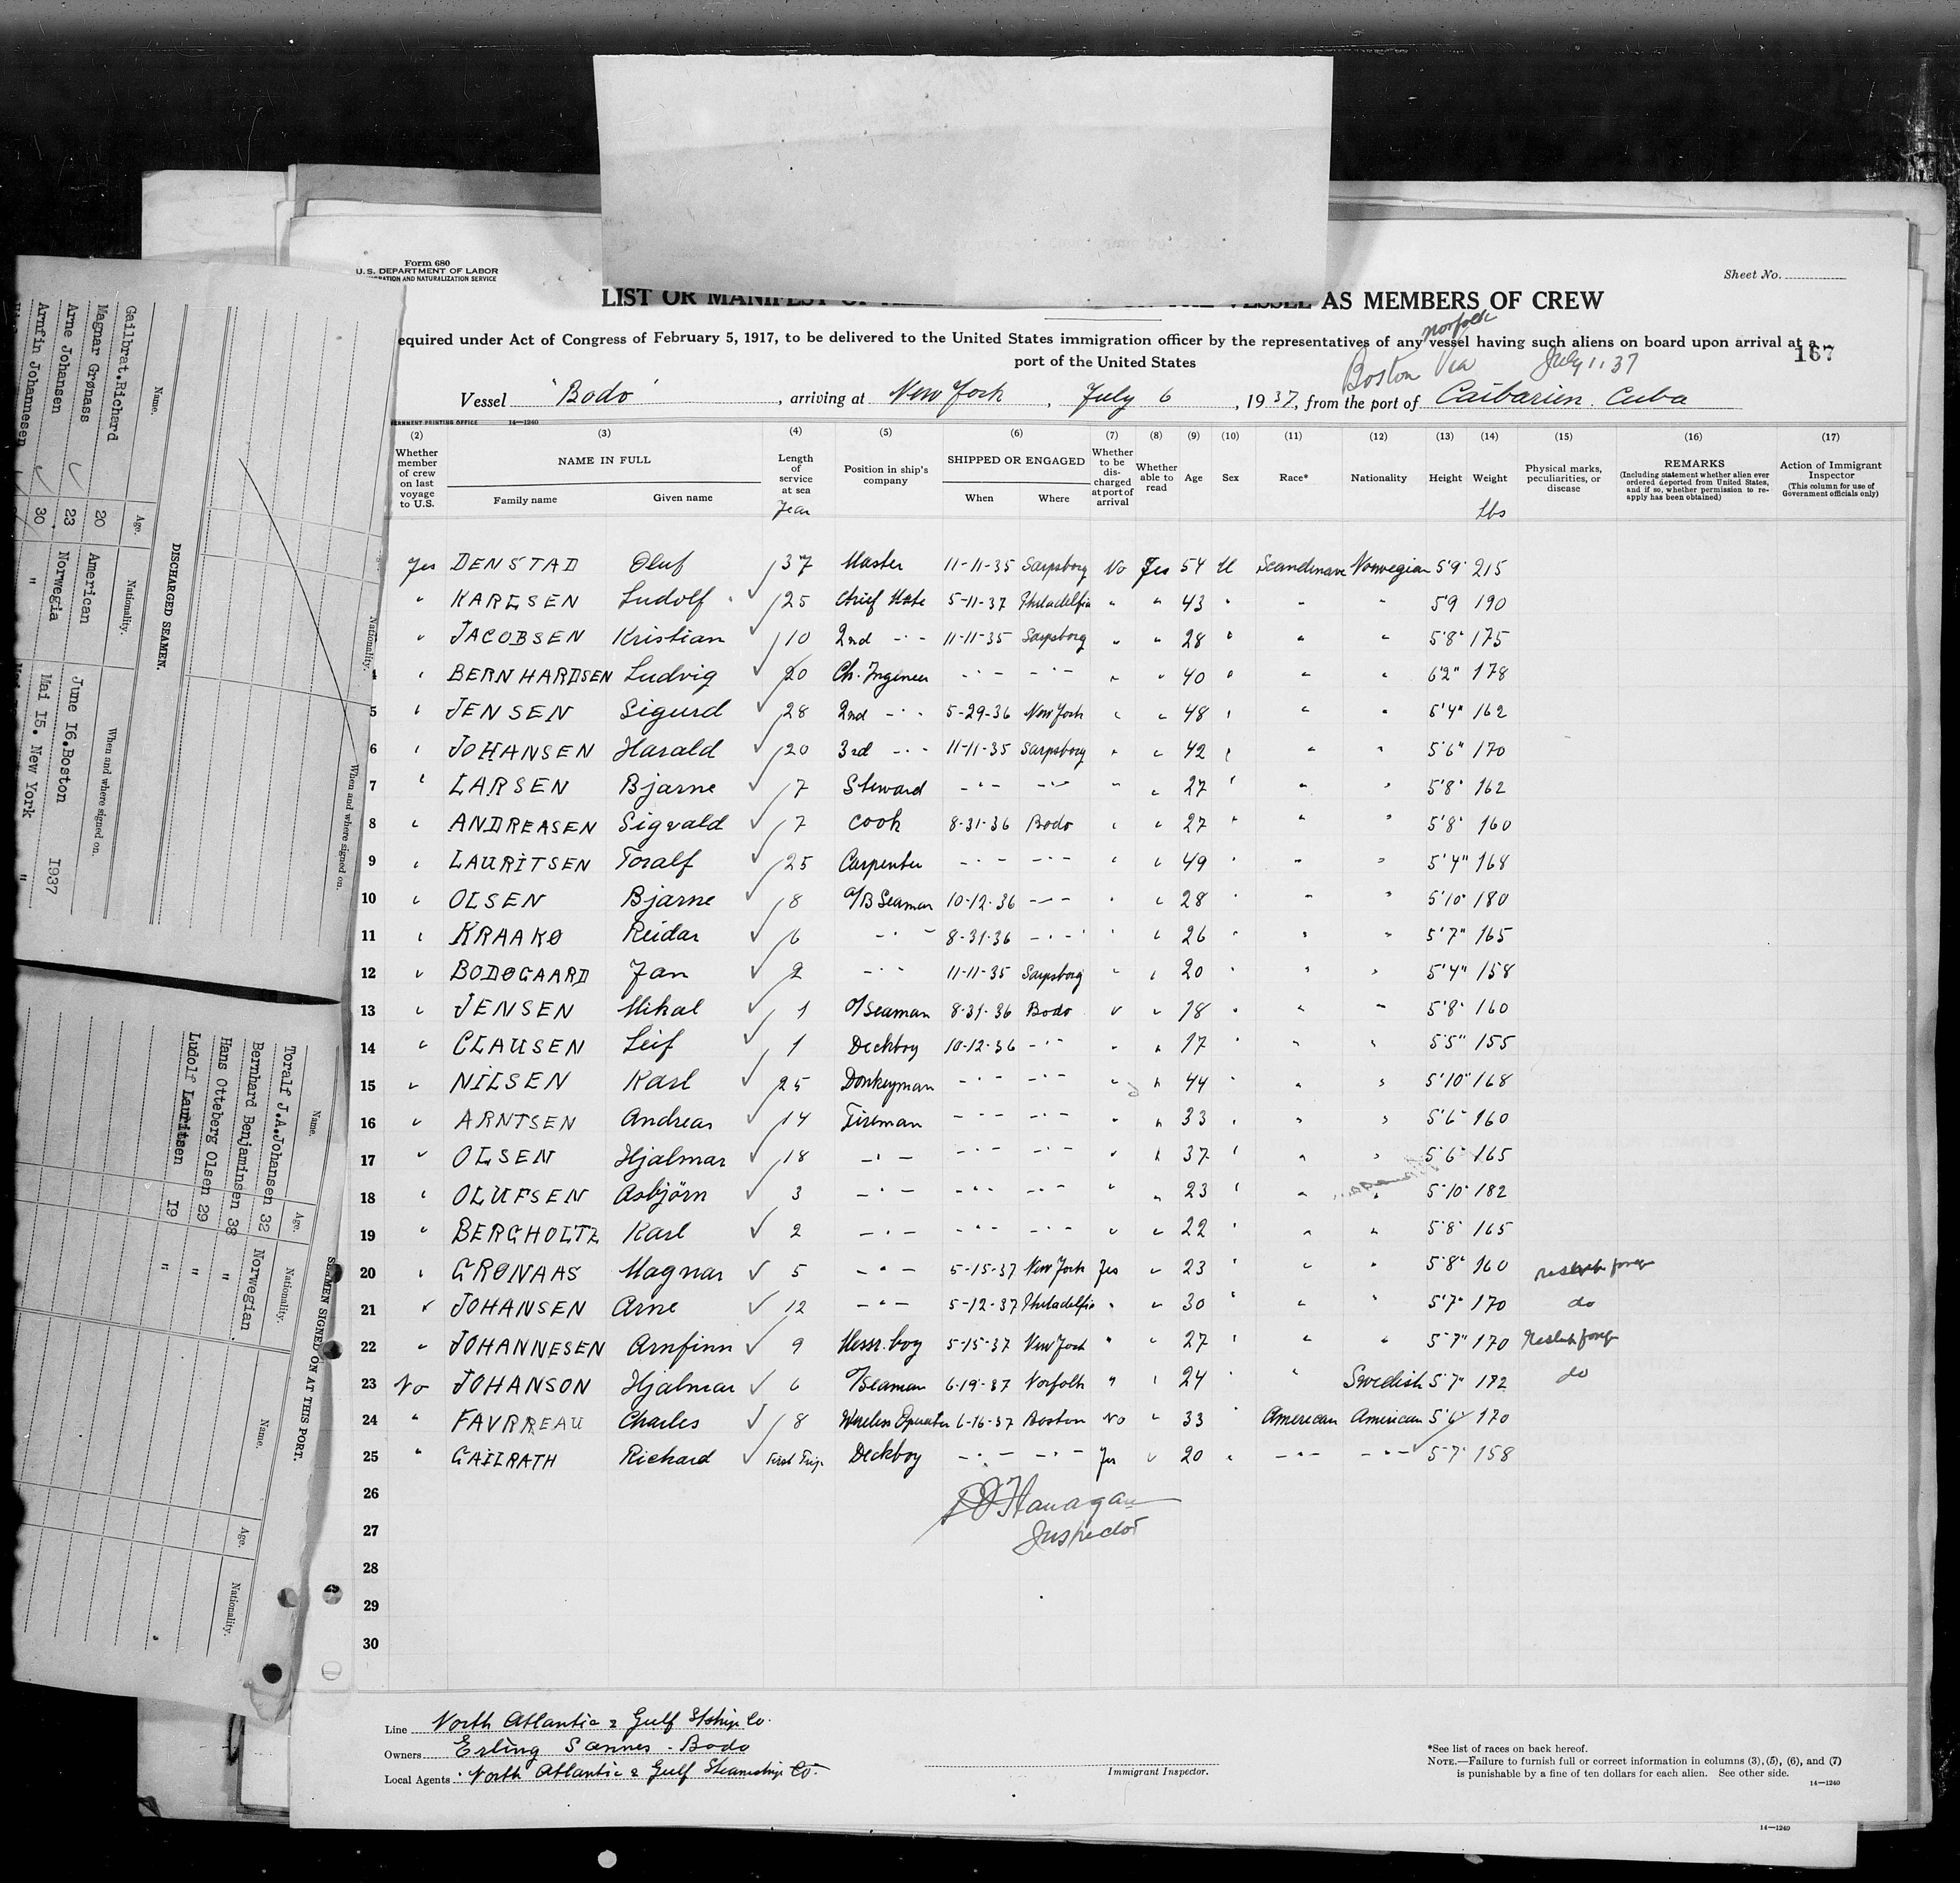 Form 680
U. S. DEPARTMENT OF LABOR
RATION AND NATURALIZATION SERVICE
Sheet No.
LIST OR MANIFEST OF VESSEL AS MEMBERS OF CREW
equired under Act of Congress of February 5, 1917, to be delivered to the United States immigration officer by the representatives of any vessel having such aliens on board upon arrival at a
port of the United States
167
Norfolk
Boston Via July 1, 37
Vessel "Bodo", arriving at New York, July 6, 1937, from the port of Caibarien. Cuba
ERNMENT PRINTING OFFICE 14—1240
(2) (3) (4) (5) (6) (7) (8) (9) (10) (11) (12) (13) (14) (15) (16) (17)
Whether member of crew on last voyage to U.S. NAME IN FULL Family name Given name Length of service at sea Position in ship's company SHIPPED OR ENGAGED When Where Whether to be discharged at port of arrival Whether able to read Age Sex Race* Nationality Height Weight Physical marks, peculiarities, or disease REMARKS (Including statement whether alien ever ordered deported from United States, and if so, whether permission to reapply has been obtained) Action of Immigrant Inspector (This column for use of Government officials only)
Year lbs
Yes DENSTAD Oluf 37 Master 11-11-35 Sarpsborg No Yes 54 M Scandinave Norwegian 5'9" 215
" KARLSEN Ludolf 25 Chief Mate 5-11-37 Philadelfia " " 43 " " " 5'9 190
" JACOBSEN Kristian 10 2nd -"- 11-11-35 Sarpsborg " " 28 " " " 5'8" 175
" BERNHARDSEN Ludvig 20 Ch. Ingeneer -"- -"- " " 40 " " " 6'2" 178
5 " JENSEN Sigurd 28 2nd -"- 5-29-36 New York " " 48 " " " 5'4" 162
6 " JOHANSEN Harald 20 3rd -"- 11-11-35 Sarpsborg " " 42 " " " 5'6" 170
7 " LARSEN Bjarne 7 Steward -"- -"- " " 27 " " " 5'8" 162
8 " ANDREASEN Sigvald 7 Cook 8-31-36 Bodo " " 27 " " " 5'8" 160
9 " LAURITSEN Toralf 25 Carpenter -"- -"- " " 49 " " " 5'4" 168
10 " OLSEN Bjarne 8 A/B Seaman 10-12-36 -"- " " 28 " " " 5'10" 180
11 " KRAAKØ Reidar 6 -"- 8-31-36 -"- " " 26 " " " 5'7" 165
12 " BODØGAARD Jan 2 -"- 11-11-35 Sarpsborg " " 20 " " " 5'4" 158
13 " JENSEN Mikal 1 O/Seaman 8-31-36 Bodo " " 18 " " " 5'8" 160
14 " CLAUSEN Leif 1 Deckboy 10-12-36 -"- " " 17 " " " 5'5" 155
15 " NILSEN Karl 25 Donkeyman -"- -"- " " 44 " " " 5'10" 168
16 " ARNTSEN Andreas 14 Fireman -"- -"- " " 33 " " " 5'6" 160
17 " OLSEN Hjalmar 18 -"- -"- -"- " " 37 " " " 5'6" 165
18 " OLUFSEN Asbjörn 3 -"- -"- -"- " " 23 " " " 5'10" 182
19 " BERGHOLTZ Karl 2 -"- -"- -"- " " 22 " " " 5'8" 165
20 " GRØNAAS Magnar 5 -"- 5-15-37 New York Yes " 23 " " " 5'8" 160
21 " JOHANSEN Arne 12 -"- 5-12-37 Philadelfia " " 30 " " " 5'7" 170 do
22 " JOHANNESEN Arnfinn 9 Messr. boy 5-15-37 New York " " 27 " " " 5'7" 170
23 No JOHANSON Hjalmar 6 O/Seaman 6-19-37 Norfolk " " 24 " " Swedish 5'7" 182 do
24 " FAVRREAU Charles 8 Wireless Operator 6-16-37 Boston No " 33 " American American 5'6" 170
25 " GAILRATH Richard First Trip Deckboy -"- -"- Yes " 20 " -"- -"- 5'7" 158
26
27
28
29
30
Flanagan
Inspector
Line North Atlantic & Gulf Stship Co.
Owners Erling Sannes - Bodo
Local Agents North Atlantic & Gulf Steamship Co.
Immigrant Inspector.
*See list of races on back hereof.
NOTE.—Failure to furnish full or correct information in columns (3), (5), (6), and (7)
is punishable by a fine of ten dollars for each alien. See other side.
14—1240
14—1240
Nationality. When and where signed on.
DISCHARGED SEAMEN.
Name. Age. Nationality. When and where signed on.
Gailbrat.Richard 20 American June I6.Boston I937
Magnar Grønass 23 Norwegia Mai I5. New York "
Arne Johansen 30 "
Arnfin Johannesen
SEAMEN SIGNED ON AT THIS PORT.
Name. Age. Nationality. Name. Age. Nationality.
Toralf J.A.Johansen 32 Norwegian
Bernhard Benjaminsen 38 "
Hans Otteberg Olsen 29 "
Ludolf Lauritsen I9 "